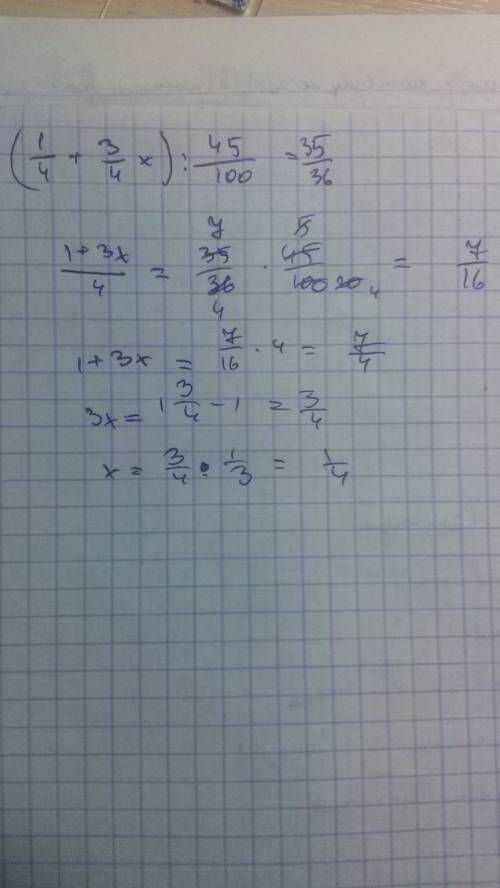 (1/4 + 3/4 x) : 45/100 = 35/36
(1+3x)/4 = 7 35/36 4 · 5 45/100 20 4 = 7/16
1+3x = 7/16 · 4 = 7/4
3x = 1 3/4 - 1 = 3/4
x = 3/4 · 1/3 = 1/4